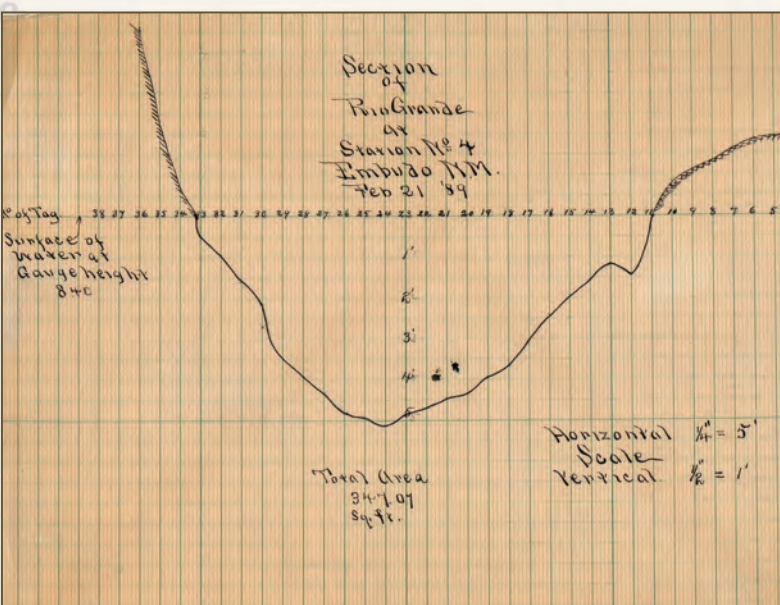 Section
of
Rio Grande
at
Station No 4
Embudo N.M.
Feb 21 '89
No of Tag 38 37 36 35 34 33 32 31 30 29 28 27 26 25 24 23 22 21 20 19 18 17 16 15 14 13 12 11 10 9 8 7 6 5
Surface of
Water at
Gauge height
8.40
1'
2'
3'
4'
5'
Horizontal 1/4" = 5'
Scale
Vertical 1/2" = 1'
Total Area
347.07
Sq. ft.